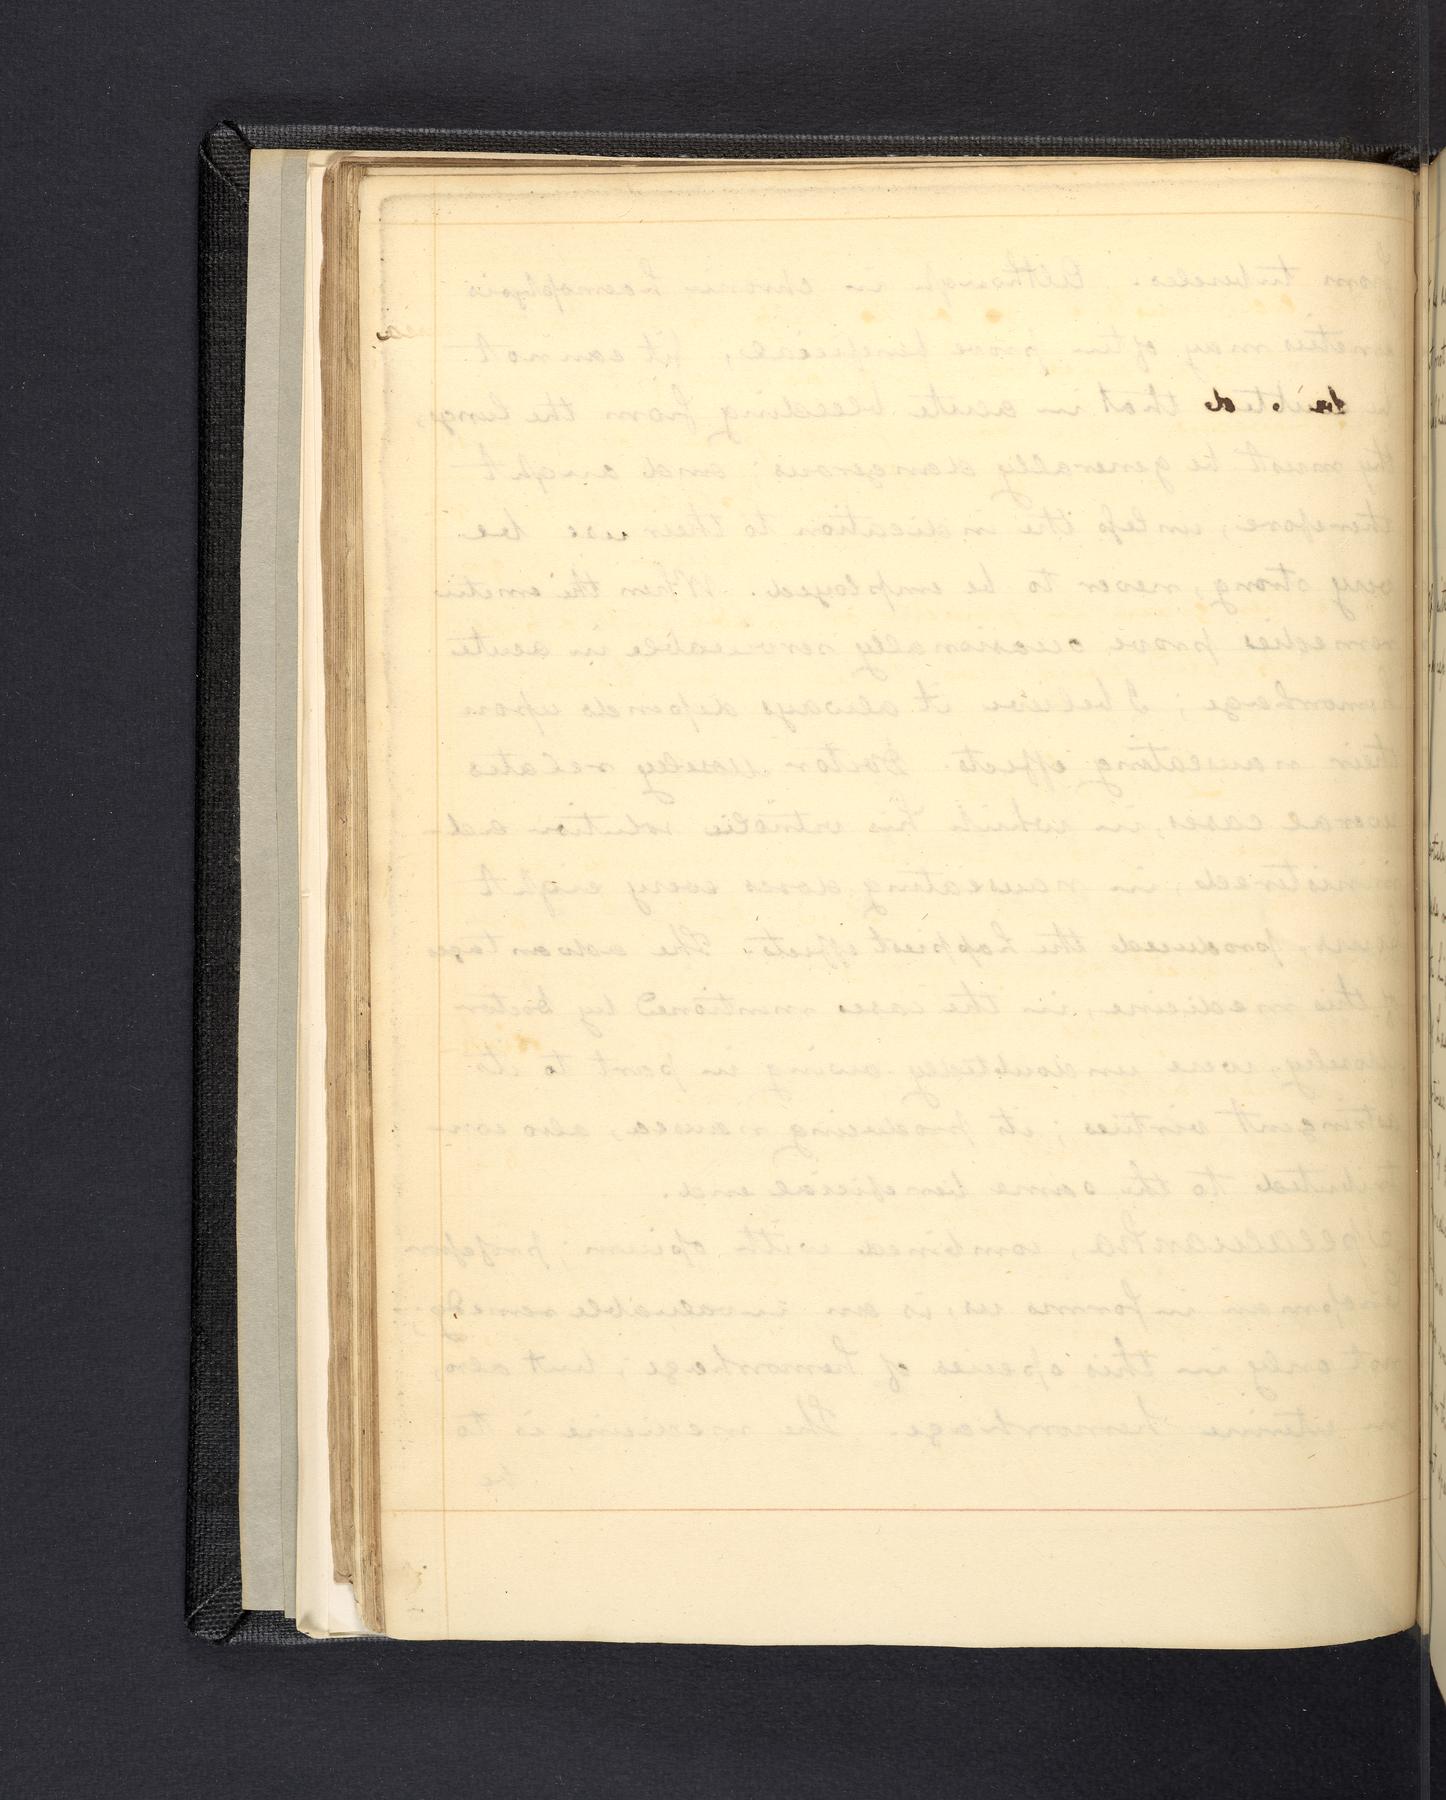 from tubercles. Although in chronic hæmoptysis
emetics may often prove beneficial, it can not
be doubted that in acute bleeding from the lungs,
they must be generally dangerous; and ought
therefore, unless the indication to their use be
very strong, never to be employed. When the emetic
remedies prove occasionally serviceable in acute
hemorrhage; I believe it always depends upon
their nauseating effects. Doctor Mosely relates
several cases, in which his vitriolic solution ad-
ministered, in nauseating doses every eight
hours, produced the happiest effects. The advantages
of this medicine, in the cases mentioned by Doctor
Mosely, were undoubtedly owing in part to its
astringent virtues; its producing nausea, also con-
tributed to the same beneficial end.
Ipecacuanha, combined with opium; professor
informs us, is an invaluable remedy,
not only in this species of hemorrhage, but also,
in uterine hemorrhage. The medicine is to
be